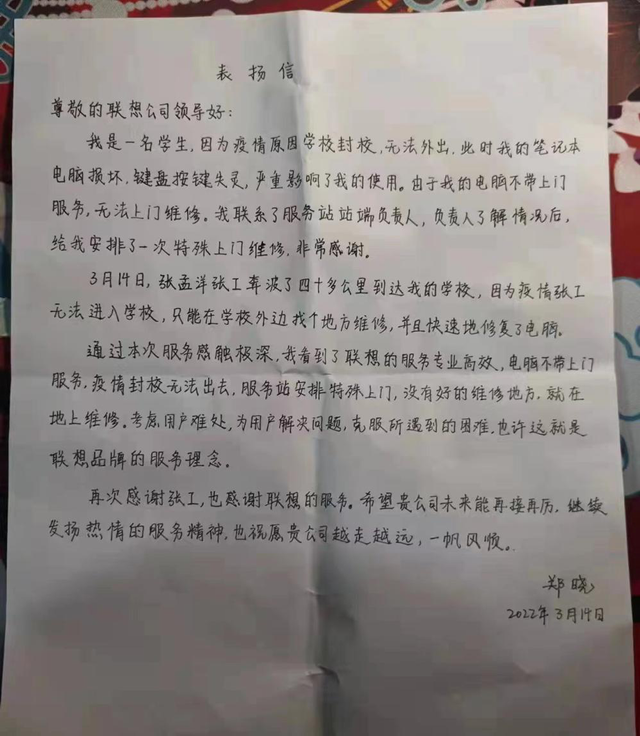 表扬信
尊敬的联想公司领导好:
我是一名学生,因为疫情原因学校封校,无法外出,此时我的笔记本
电脑损坏,键盘按键失灵,严重影响了我的使用。由于我的电脑不带上门
服务,无法上门维修。我联系了服务站站端负责人,负责人了解情况后,
给我安排了一次特殊上门维修,非常感谢。
3月14日,张孟洋张工奔波了四十多公里到达我的学校,因为疫情张工
无法进入学校,只能在学校外边找个地方维修,并且快速地修复了电脑。
通过本次服务感触极深,我看到了联想的服务专业高效,电脑不带上门
服务,疫情封校无法出去,服务站安排特殊上门,没有好的维修地方,就在
地上维修。考虑用户难处,为用户解决问题,克服所遇到的困难,也许这就是
联想品牌的服务理念。
再次感谢张工,也感谢联想的服务。希望贵公司未来能再接再厉,继续
发扬热情的服务精神,也祝愿贵公司越走越远,一帆风顺。
郑晓
2022年3月14日